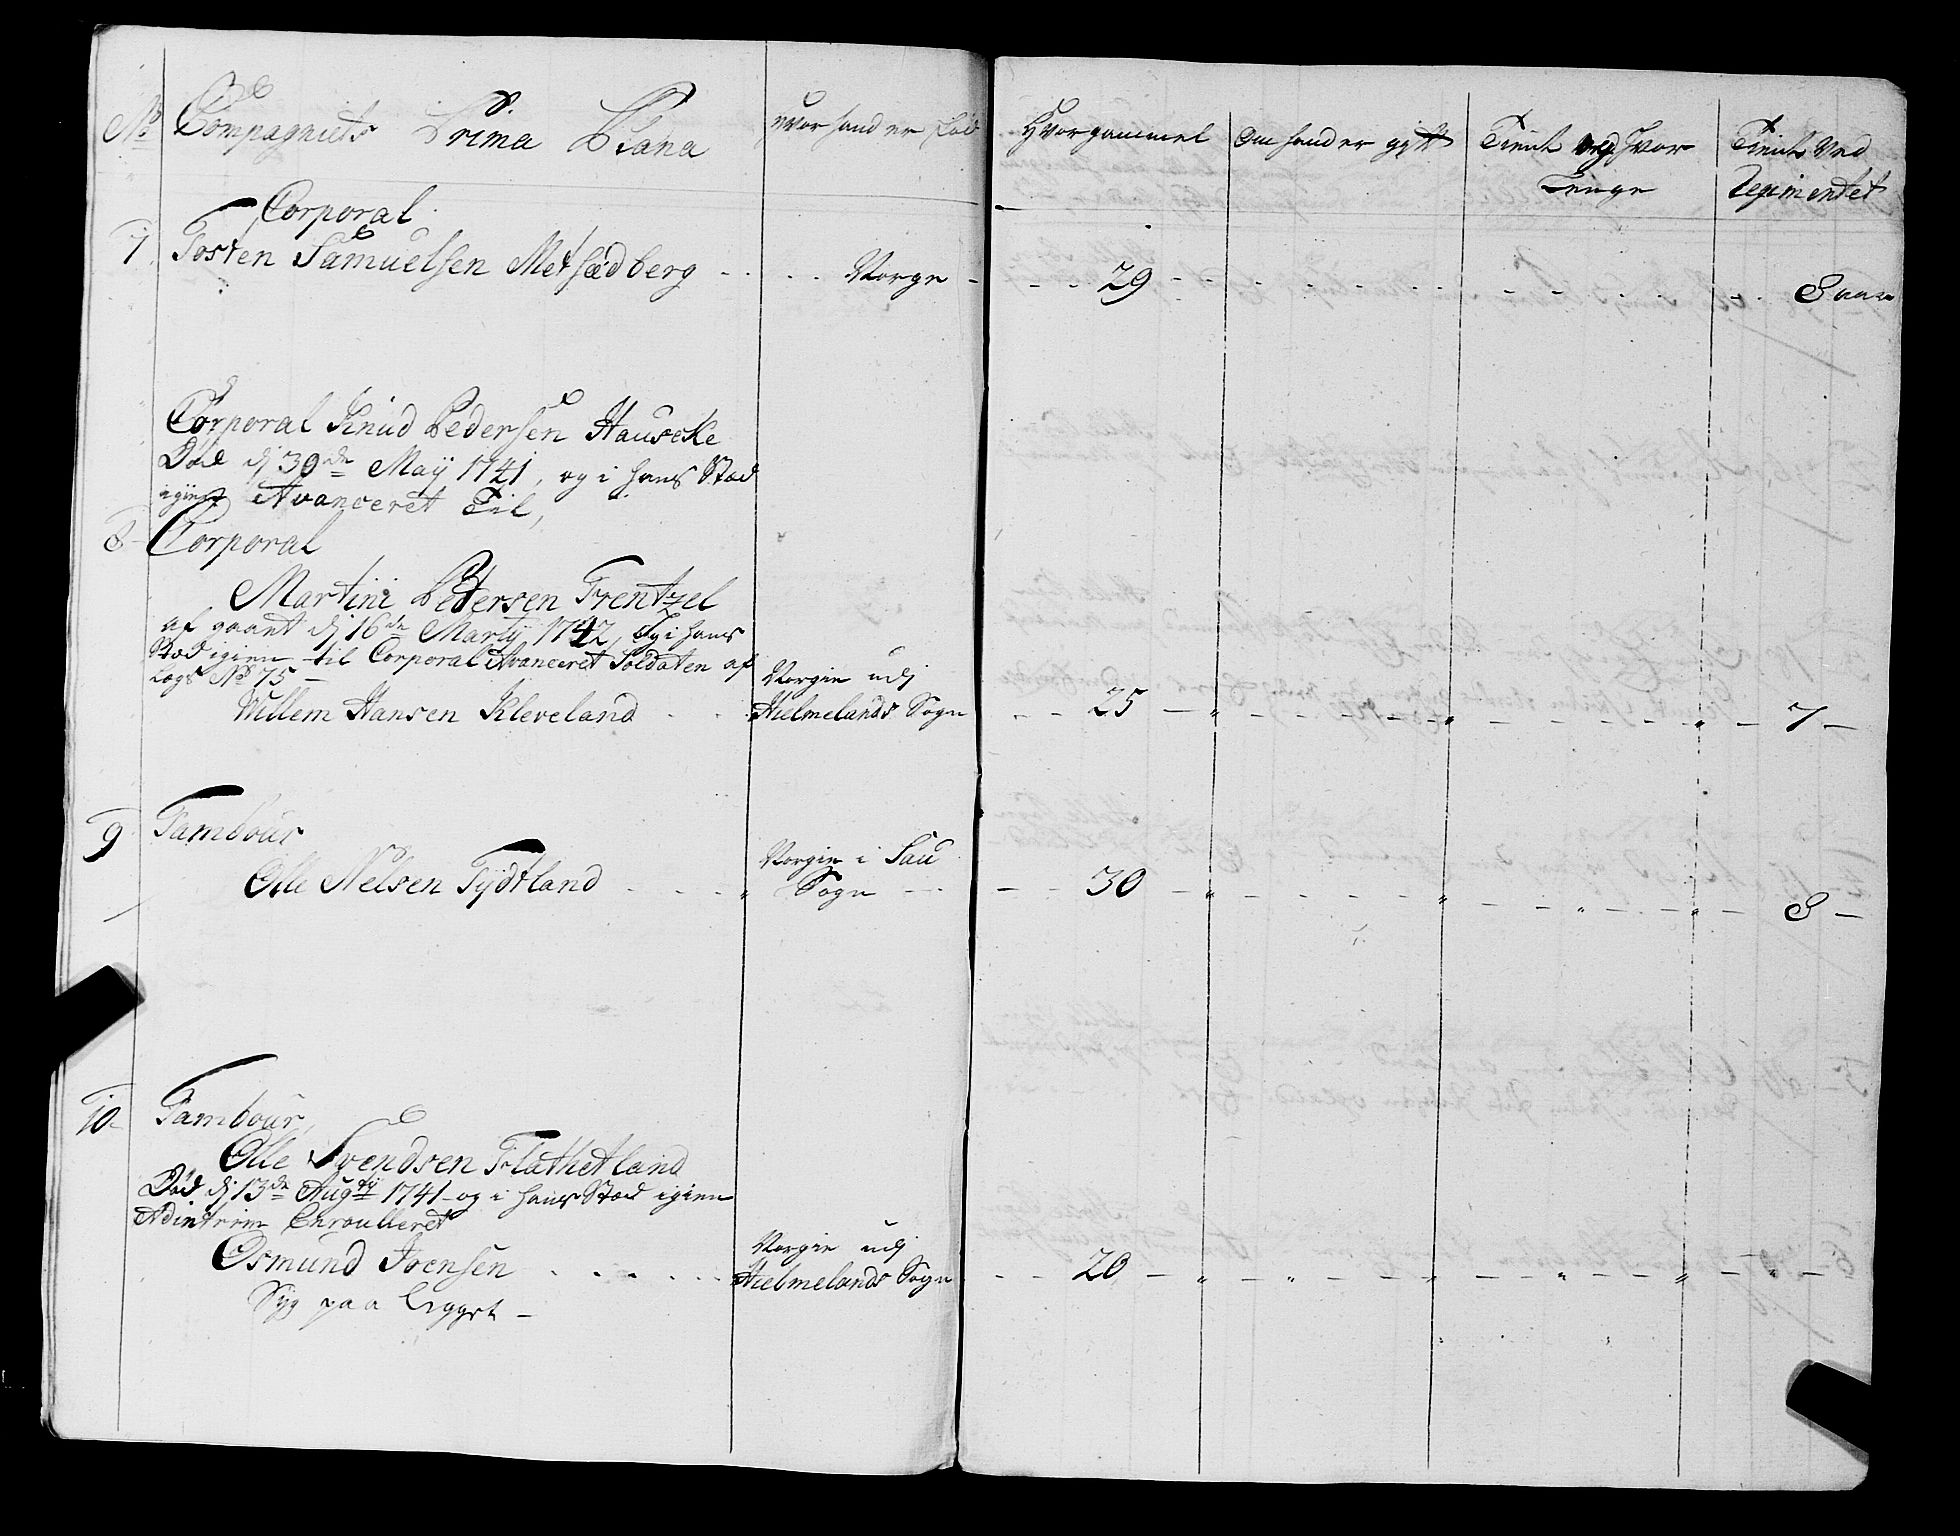 No Compagniets Prima Plana hvor hand er fød Hvor gammel Om hand er gift Tient og hvor Tient Ved
Lenge Regimentet
Corporal
7 Tosten Samuelsen Metsædberg Norge 29 8 aar
Corporal Knud Pedersen Hauscke
Død dj 30de Maij 1741, og i hans Stæd
igien Avanceret Til,
8 Corporal
Martini Petersen Frentzel
af gaaet dj 16de Martij 1742, Og i hans
Stæd igien til Corporal Avanceret Soldaten af
Lægs No 75
Willem Hansen Kleveland Norgie udj Hielmelands Sogn 25 7
9 Tambour
Olle Nelsen Tydtland Norgie i Sau Sogn 30 8
10 Tambour,
Olle Svendsen Flathetland
Død dj 13de Augtij 1741 og i hans Stæd igien
Adintrim Enroulleret
Osmund Ivensen Norgie udj Hielmelands Sogn 20
Syg paa Ligget